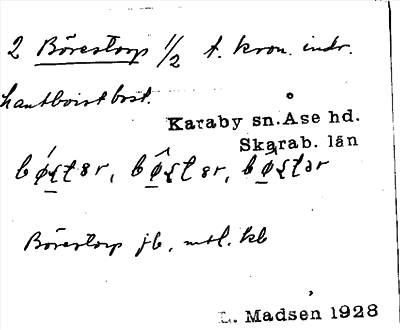 2 Börestorp 1/2 f. kron. indr.
hautboist bost.
Karaby sn. Åse hd.
Skarab. län
Börestorp jb, mtl. kb
L. Madsen 1928